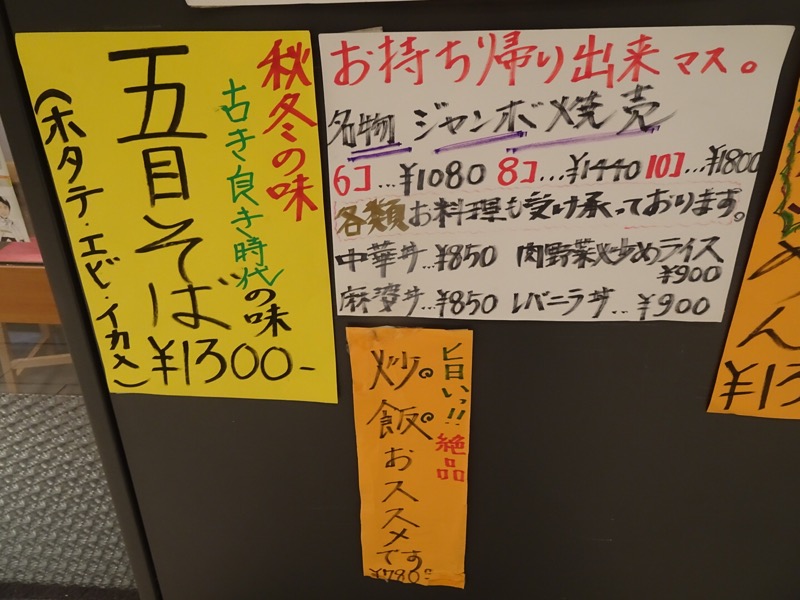 秋冬の味
古き良き時代の味
五目そば
(ホタテ・エビ・イカ入)
¥1300-
お持ち帰り出来マス。
名物 ジャンボ焼売
6コ…¥1080 8コ…¥1440 10コ…¥1800
各類お料理も受け承っております。
中華丼…¥850 肉野菜炒めライス
¥900
麻婆丼…¥850 レバニラ丼…¥900
旨いっ!! 絶品
炒飯
おススメです
¥780-
めん
¥13